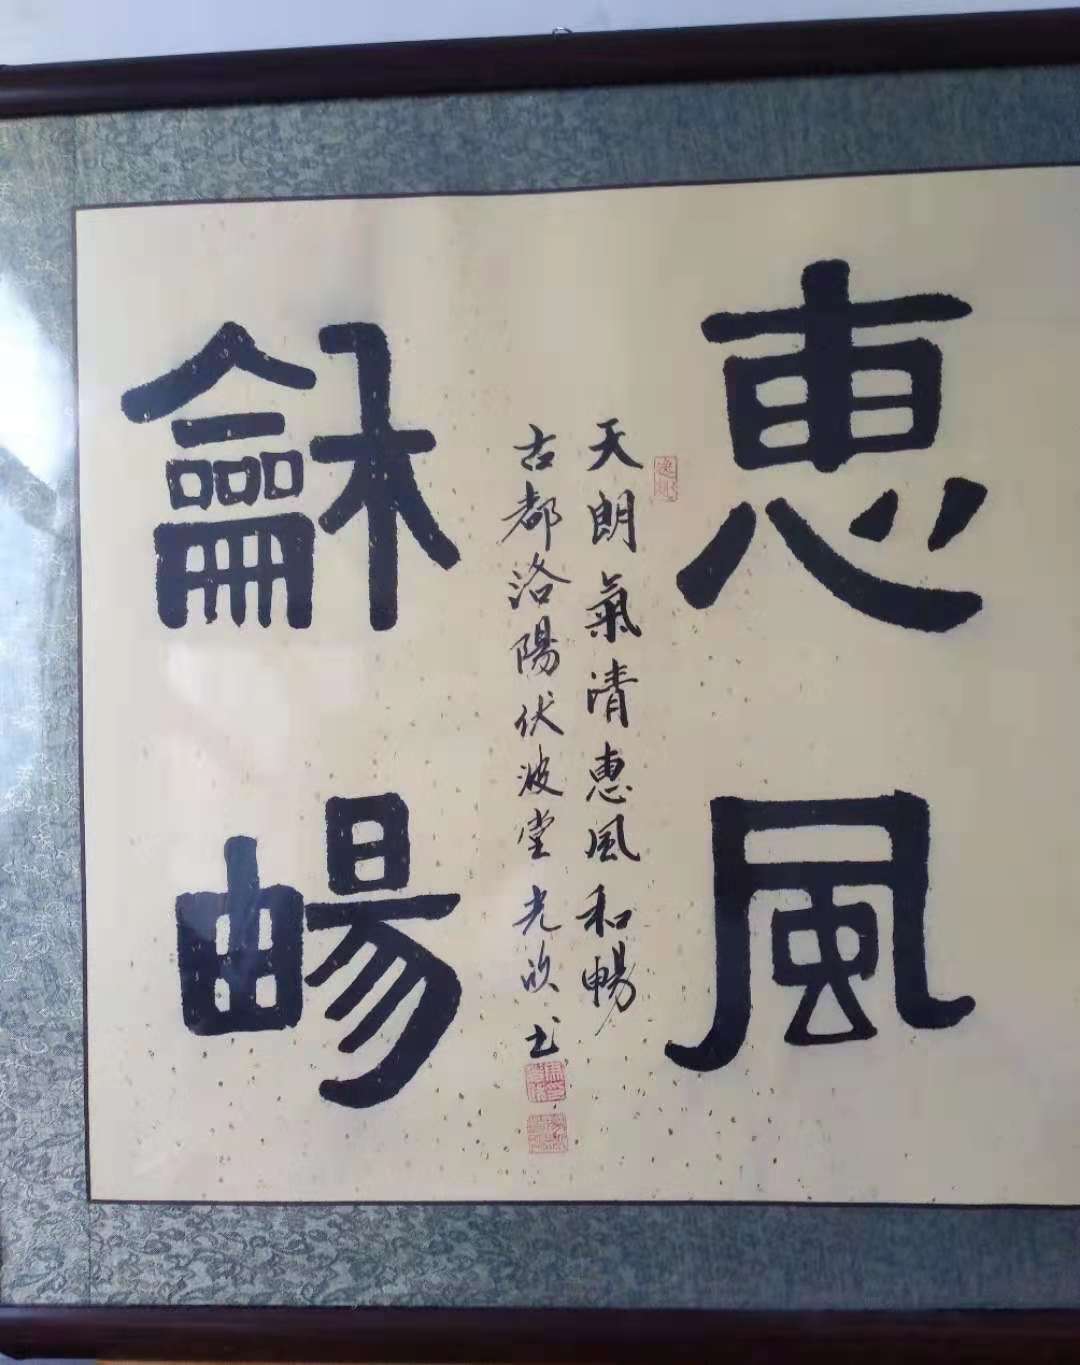 惠風
天朗氣清惠風和暢
古都洛陽伏波堂光欣书
龢暢